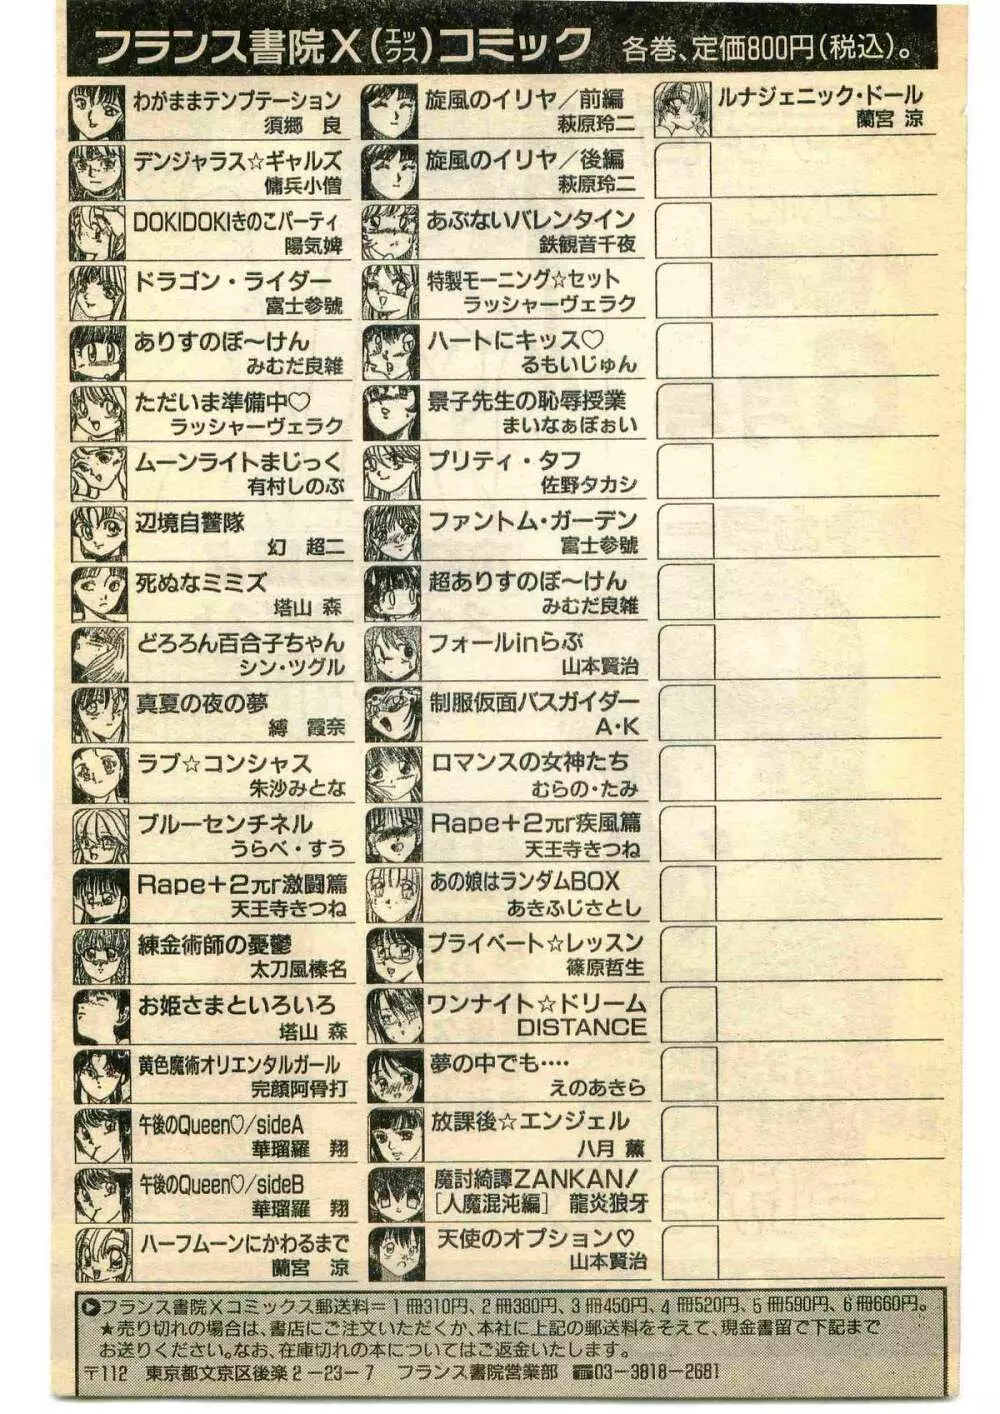 フランス書院X(エックス)コミック 各巻、定価800円(税込)。
わがままテンプテーション
須郷 良
デンジャラス☆ギャルズ
傭兵小僧
DOKIDOKIきのこパーティ
陽気婢
ドラゴン・ライダー
富士参號
ありすのぼ〜けん
みむだ良雑
ただいま準備中♡
ラッシャーヴェラク
ムーンライトまじっく
有村しのぶ
辺境自警隊
幻 超二
死ぬなミミズ
塔山 森
どろろん百合子ちゃん
シン・ツグル
真夏の夜の夢
縛 霞奈
ラブ☆コンシャス
朱沙みとな
ブルーセンチネル
うらべ・すう
Rape+2πr激闘篇
天王寺きつね
練金術師の憂鬱
太刀風榛名
お姫さまといろいろ
塔山 森
黄色魔術オリエンタルガール
完顔阿骨打
午後のQueen♡/sideA
華瑠羅 翔
午後のQueen♡/sideB
華瑠羅 翔
ハーフムーンにかわるまで
蘭宮 涼
旋風のイリヤ/前編
萩原玲二
旋風のイリヤ/後編
萩原玲二
あぶないバレンタイン
鉄観音千夜
特製モーニング☆セット
ラッシャーヴェラク
ハートにキッス♡
るもいじゅん
景子先生の恥辱授業
まいなぁぼぉい
プリティ・タフ
佐野タカシ
ファントム・ガーデン
富士参號
超ありすのぼ〜けん
みむだ良雑
フォールinらぶ
山本賢治
制服仮面バスガイダー
A・K
ロマンスの女神たち
むらの・たみ
Rape+2πr疾風篇
天王寺きつね
あの娘はランダムBOX
あきふじさとし
プライベート☆レッスン
篠原哲生
ワンナイト☆ドリーム
DISTANCE
夢の中でも‥‥
えのあきら
放課後☆エンジェル
八月 薫
魔討綺譚ZANKAN!
[人魔混沌編] 龍炎狼牙
天使のオプション♡
山本賢治
ルナジェニック・ドール
蘭宮 涼
▶フランス書院Xコミックス郵送料=1冊310円、2冊380円、3冊450円、4冊520円、5冊590円、6冊660円。
★売り切れの場合は、書店にご注文いただくか、本社に上記の郵送料をそえて、現金書留で下記まで
お送りください。なお、在庫切れの本についてはご返金いたします。
〒112 東京都文京区後楽2-23-7 フランス書院営業部 ☎03-3818-2681